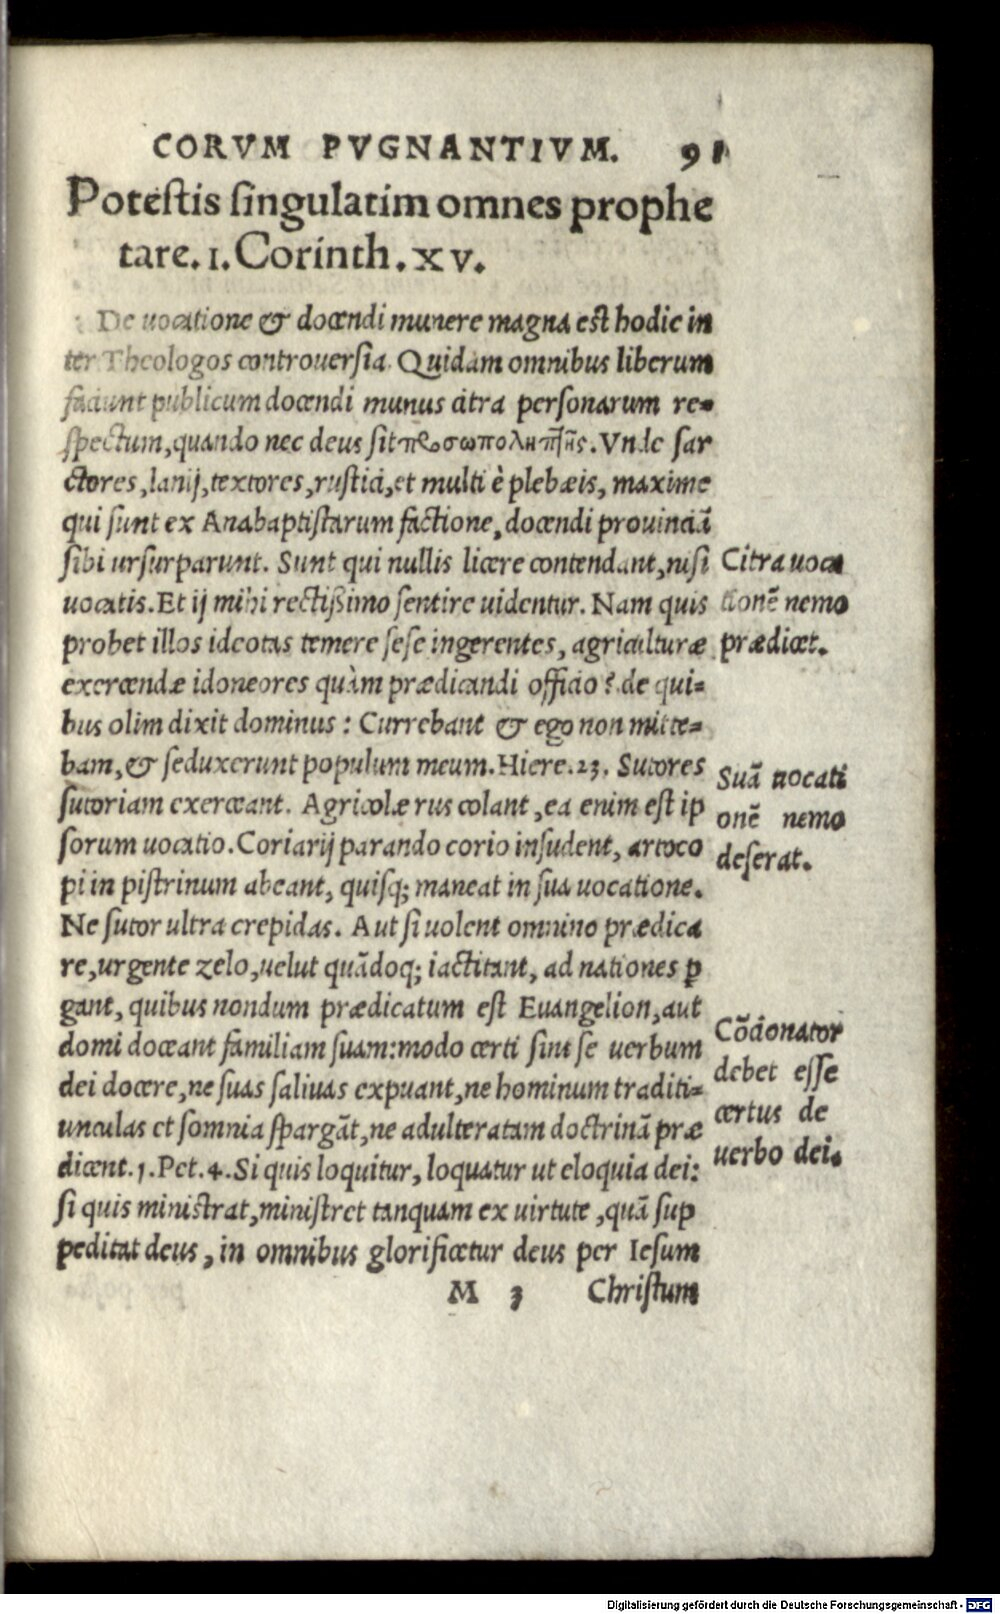 CORVM PVGNANTIVM. 91
Potestis singulatim omnes prophe
tare. 1. Corinth. xv.
De uocatione & docendi munere magna est hodie in
ter Theologos controuersia. Quidam omnibus liberum
faciunt publicum docendi munus citra personarum re-
spectum, quando nec deus sit προσωπολήπτης. Vnde sar
ctores, lanij, textores, rustici, et multi è plebæis, maxime
qui sunt ex Anabaptistarum factione, docendi prouinciā
sibi ursurparunt. Sunt qui nullis licere contendant, nisi
uocatis. Et ij mihi rectißimo sentire uidentur. Nam quis
probet illos ideotas temere sese ingerentes, agriculturæ
exercendæ idoneores quàm prædicandi officio? de qui=
bus olim dixit dominus: Currebant & ego non mitte=
bam, & seduxerunt populum meum. Hiere. 23. Sutores
sutoriam exerceant. Agricolæ rus colant, ea enim est ip
sorum uocatio. Coriarij parando corio insudent, artoco
pi in pistrinum abeant, quisq; maneat in sua uocatione.
Ne sutor ultra crepidas. Aut si uolent omnino prædica
re, urgente zelo, uelut quādoq; iactitant, ad nationes ꝑ
gant, quibus nondum prædicatum est Euangelion, aut
domi doceant familiam suam: modo certi sint se uerbum
dei docere, ne suas saliuas expuant, ne hominum traditi=
unculas et somnia spargāt, ne adulteratam doctrinā præ
dicent. 1. Pet. 4. Si quis loquitur, loquatur ut eloquia dei:
si quis ministrat, ministret tanquam ex uirtute, quā sup
peditat deus, in omnibus glorificetur deus per Iesum
M 3 Christum
Citra uoca
tionē nemo
prædicet.
Suā uocati
onē nemo
deserat.
Cōcionator
debet esse
certus de
uerbo dei.
Digitalisierung gefördert durch die Deutsche Forschungsgemeinschaft - DFG